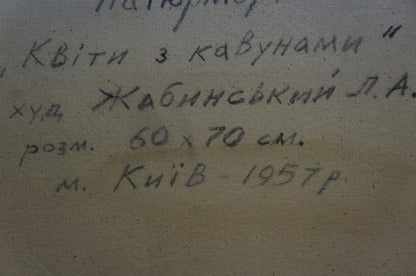 Натюрморт
„Квіти з кавунами"
худ Жабинський Л.А.
розм. 60 х 70 см.
м. Київ - 1957 р.